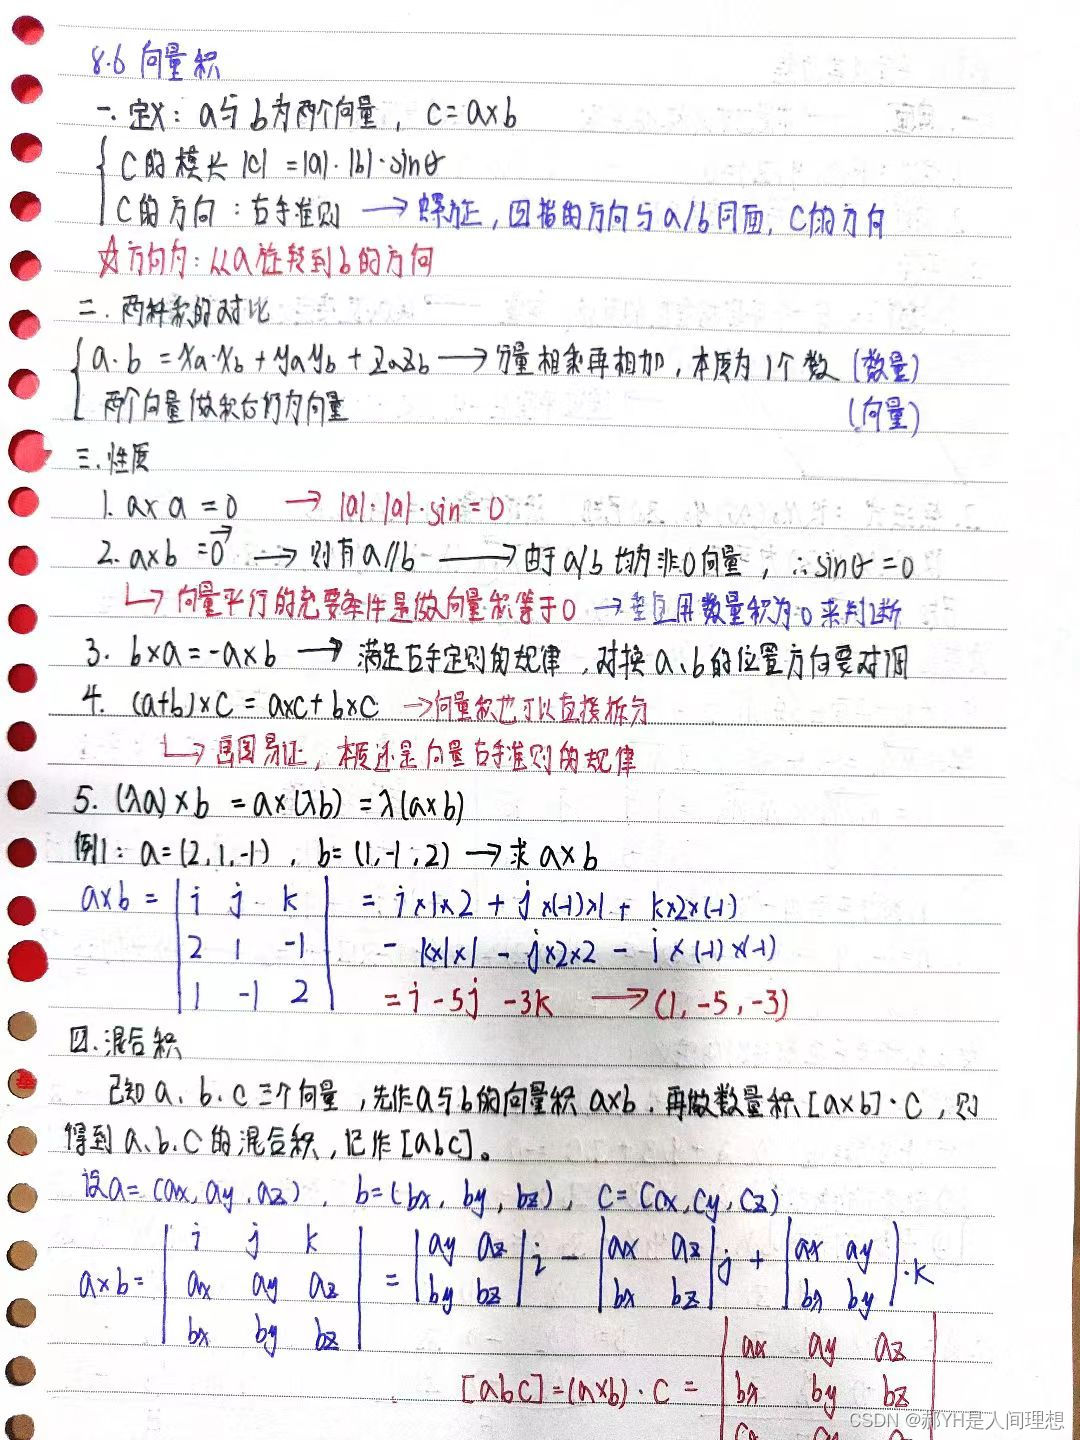 8.6 向量积
一. 定义: a与b为两个向量, c=a×b
c的模长 |c| =|a|·|b|·sinθ
c的方向: 右手准则 → 螺旋, 四指的方向与a/b同面, c的方向
☆方向为: 从a旋转到b的方向
二. 两种积的对比
a·b =xa·xb + yayb + zazb → 分量相乘再相加, 本质为1个数 (数量)
两个向量做积后仍为向量 (向量)
三. 性质
1. a×a =0 → |a|·|a|·sin=0
2. a×b =0 → 则有a//b → 由于a/b均为非0向量, ∴sinθ=0
↳ 向量平行的充要条件是做向量积等于0 → 垂直用数量积为0来判断
3. b×a=-a×b → 满足右手定则的规律, 对换a、b的位置方向要对调
4. (a+b)×c = a×c+b×c →向量积也可以直接拆分
↳ 画图易证, 本质还是向量右手准则的规律
5. (λa)×b =a×(λb) =λ(a×b)
例1: a=(2,1,-1), b=(1,-1,2) → 求a×b
a×b = | i j k | = i×1×2 + j×(-1)×1 + k×2×(-1)
2 1 -1 - k×1×1 - j×2×2 - i×(-1)×(-1)
1 -1 2 =i-5j-3k → (1,-5,-3)
四. 混合积
已知a、b、c三个向量, 先作a与b的向量积a×b. 再做数量积[a×b]·c, 则
得到a、b、c的混合积, 记作[abc]。
设a=(ax,ay,az), b=(bx,by,bz), c=(cx,cy,cz)
i j k
a×b= | ax ay az | = | ay az | i - | ax az | j + | ax ay | ·k
bx by bz by bz bx bz bx by
ax ay az
[abc]=(a×b)·c = | bx by bz
CSDN @郝YH是人间理想